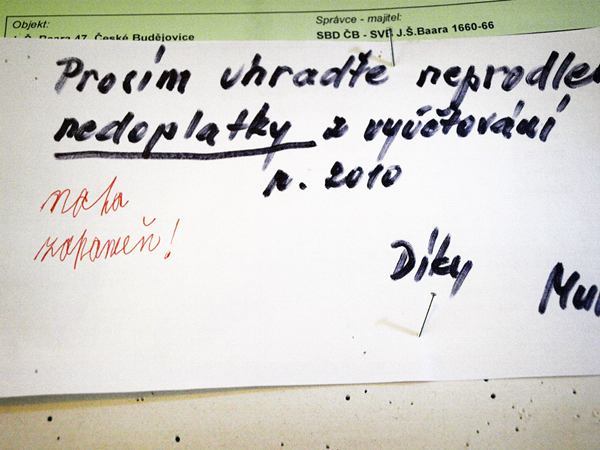 Objekt:
J.Š.Baara 47, České Budějovice
Správce - majitel:
SBD ČB - SVE J.Š.Baara 1660-66
Procím uhraďte neprodle
nedoplatky z vyúčtování
r. 2010
naha
zapameň!
Díky
Mu